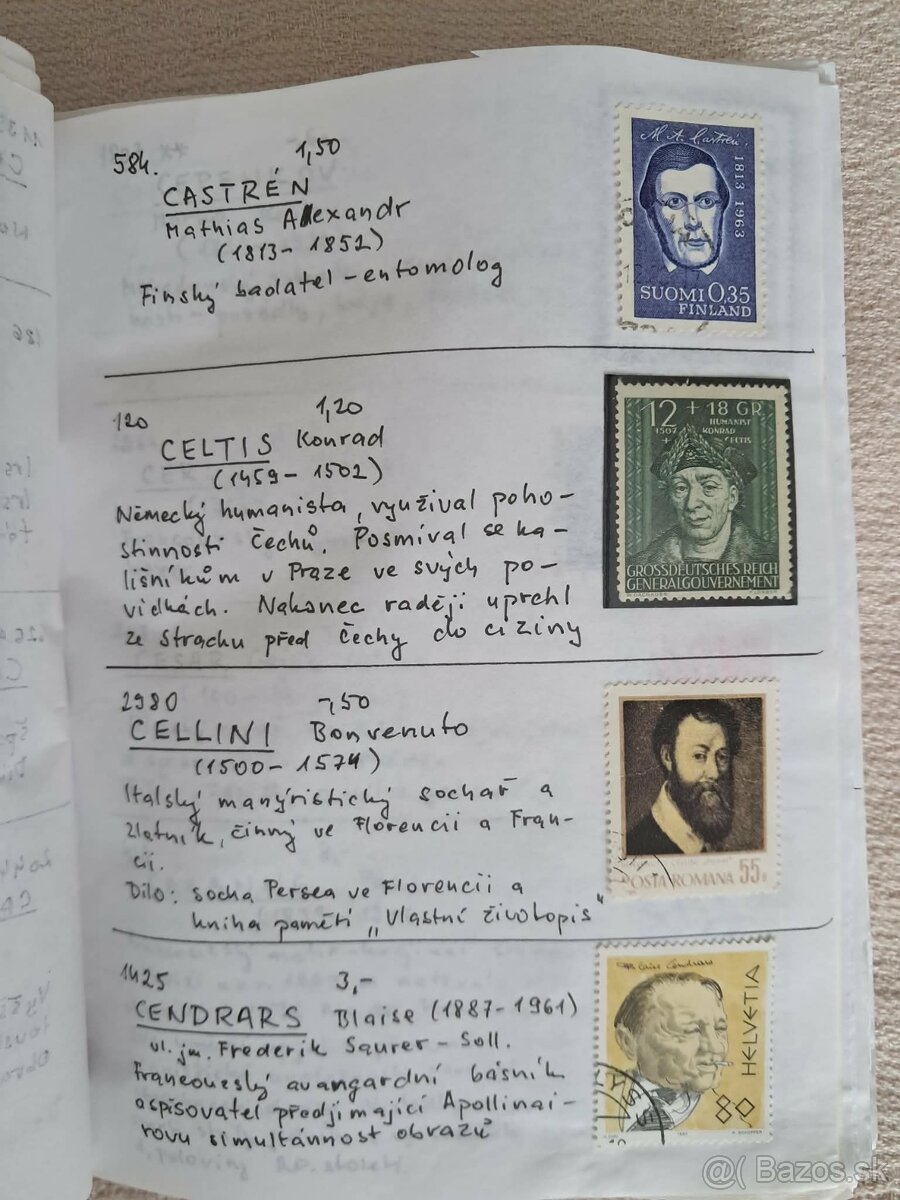 584. 1,50
CASTRÉN
Mathias Alexandr
(1813 - 1852)
Finský badatel - entomolog
M. A. Castrén.
1813 1963
SUOMI 0,35
FINLAND
120 1,20
CELTIS Konrad
(1459 - 1502)
Německý humanista, využíval poho-
stinnosti Čechů. Posmíval se ka-
lišníkům v Praze ve svých po-
vídkách. Nakonec raději uprchl
ze strachu před Čechy do ciziny
12 + 18 GR
HUMANIST
1507 KONRAD
+ CELTIS
GROSSDEUTSCHES REICH
GENERALGOUVERNEMENT
2980 -,50
CELLINI Bonvenuto
(1500 - 1574)
Italský manýristický sochař a
zlatník, činný ve Florencii a Fran-
cii.
Dílo: socha Persea ve Florencii a
kniha pamětí „Vlastní životopis"
POSTA ROMANA 55
1425 3,-
CENDRARS Blaise (1887 - 1961)
vl. jm. Frederik Saurer - Soll.
Francouzský avangardní básník
a spisovatel předjímající Apollinai-
rovu simultánnost obrazů
1. poloviny 20. století.
Blaise Cendrars
HELVETIA
80
@( Bazos.sk